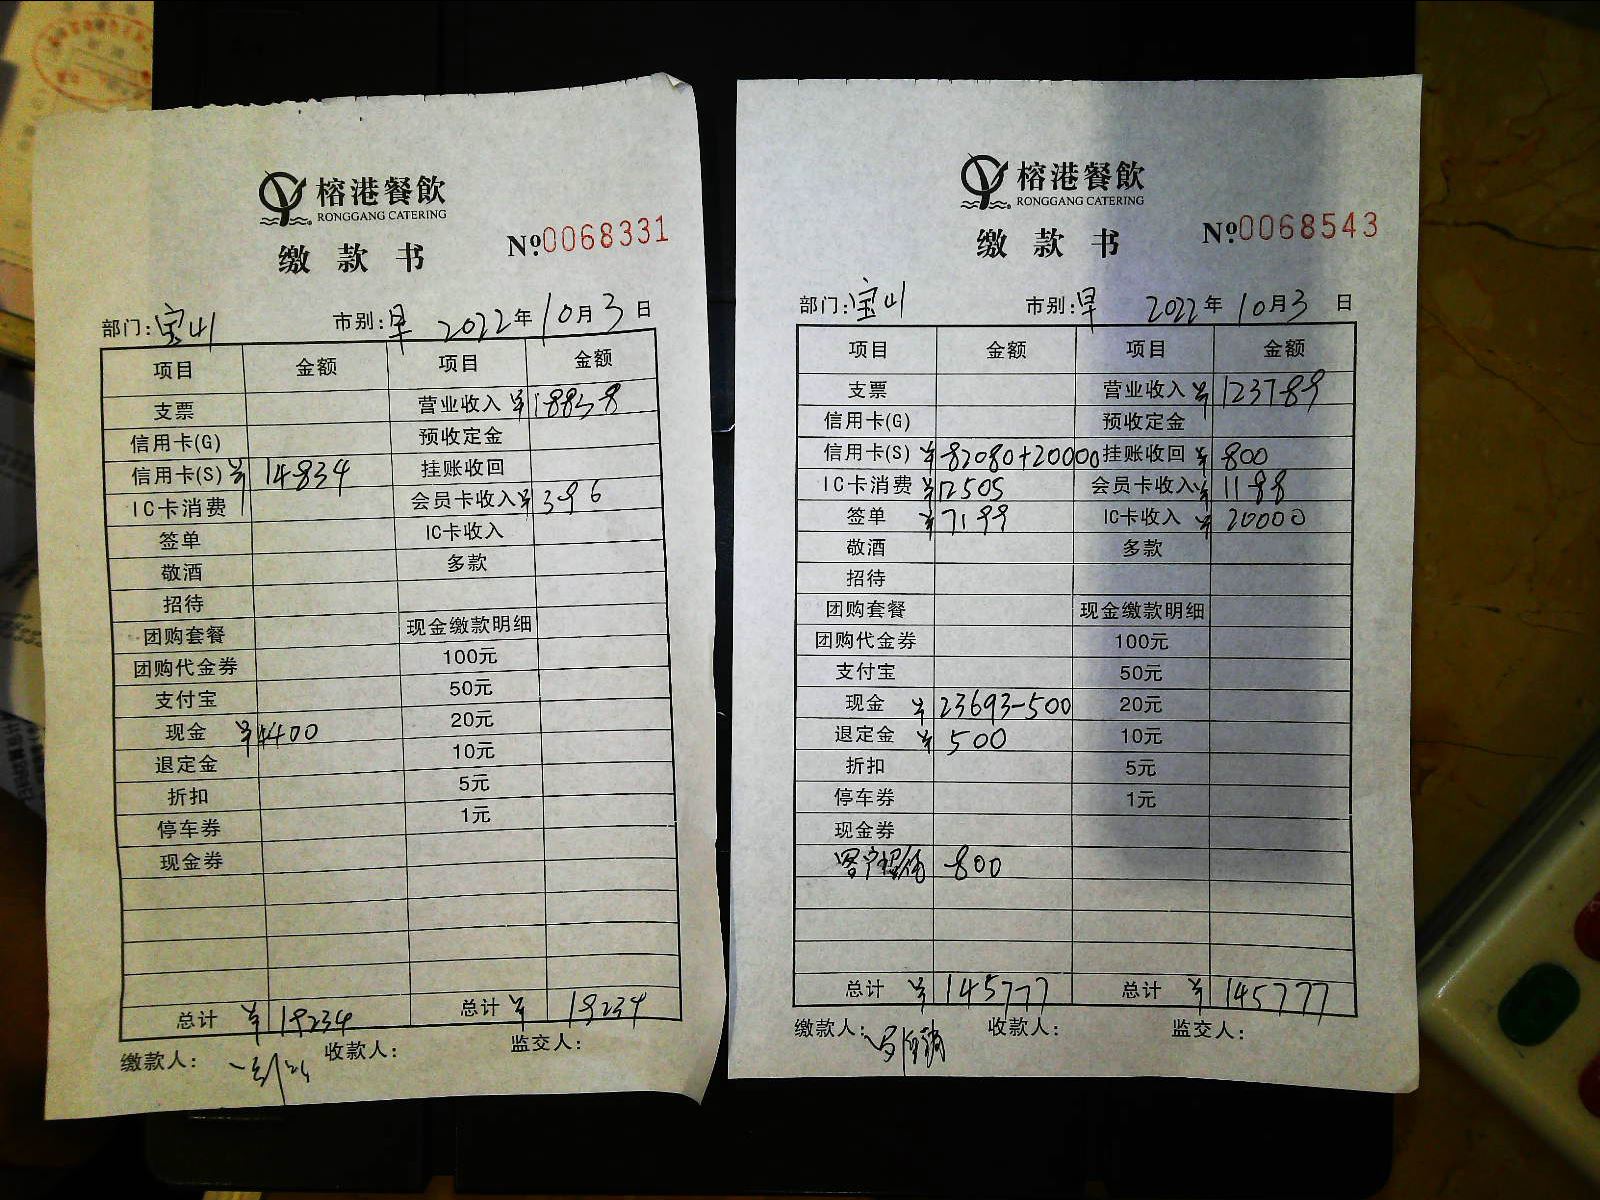 榕港餐飲
RONGGANG CATERING
缴款书
№0068331
部门:宝山 市别:早 2022年10月3日
项目 金额 项目 金额
支票 营业收入 ¥18838
信用卡(G) 预收定金
信用卡(S) ¥14834 挂账收回
IC卡消费 会员卡收入 ¥396
签单 IC卡收入
敬酒 多款
招待
团购套餐 现金缴款明细
团购代金券 100元
支付宝 50元
现金 ¥4400 20元
退定金 10元
折扣 5元
停车券 1元
现金券
总计 ¥19234 总计 ¥19234
缴款人: 收款人: 监交人:
榕港餐飲
RONGGANG CATERING
缴款书
№0068543
部门:宝山 市别:早 2022年10月3日
项目 金额 项目 金额
支票 营业收入 ¥123789
信用卡(G) 预收定金
信用卡(S) ¥82080+20000 挂账收回 ¥800
IC卡消费 ¥12505 会员卡收入 ¥1188
签单 ¥7199 IC卡收入 ¥20000
敬酒 多款
招待
团购套餐 现金缴款明细
团购代金券 100元
支付宝 50元
现金 ¥23693-500 20元
退定金 ¥500 10元
折扣 5元
停车券 1元
现金券
客户 800
总计 ¥145777 总计 ¥145777
缴款人: 收款人: 监交人: